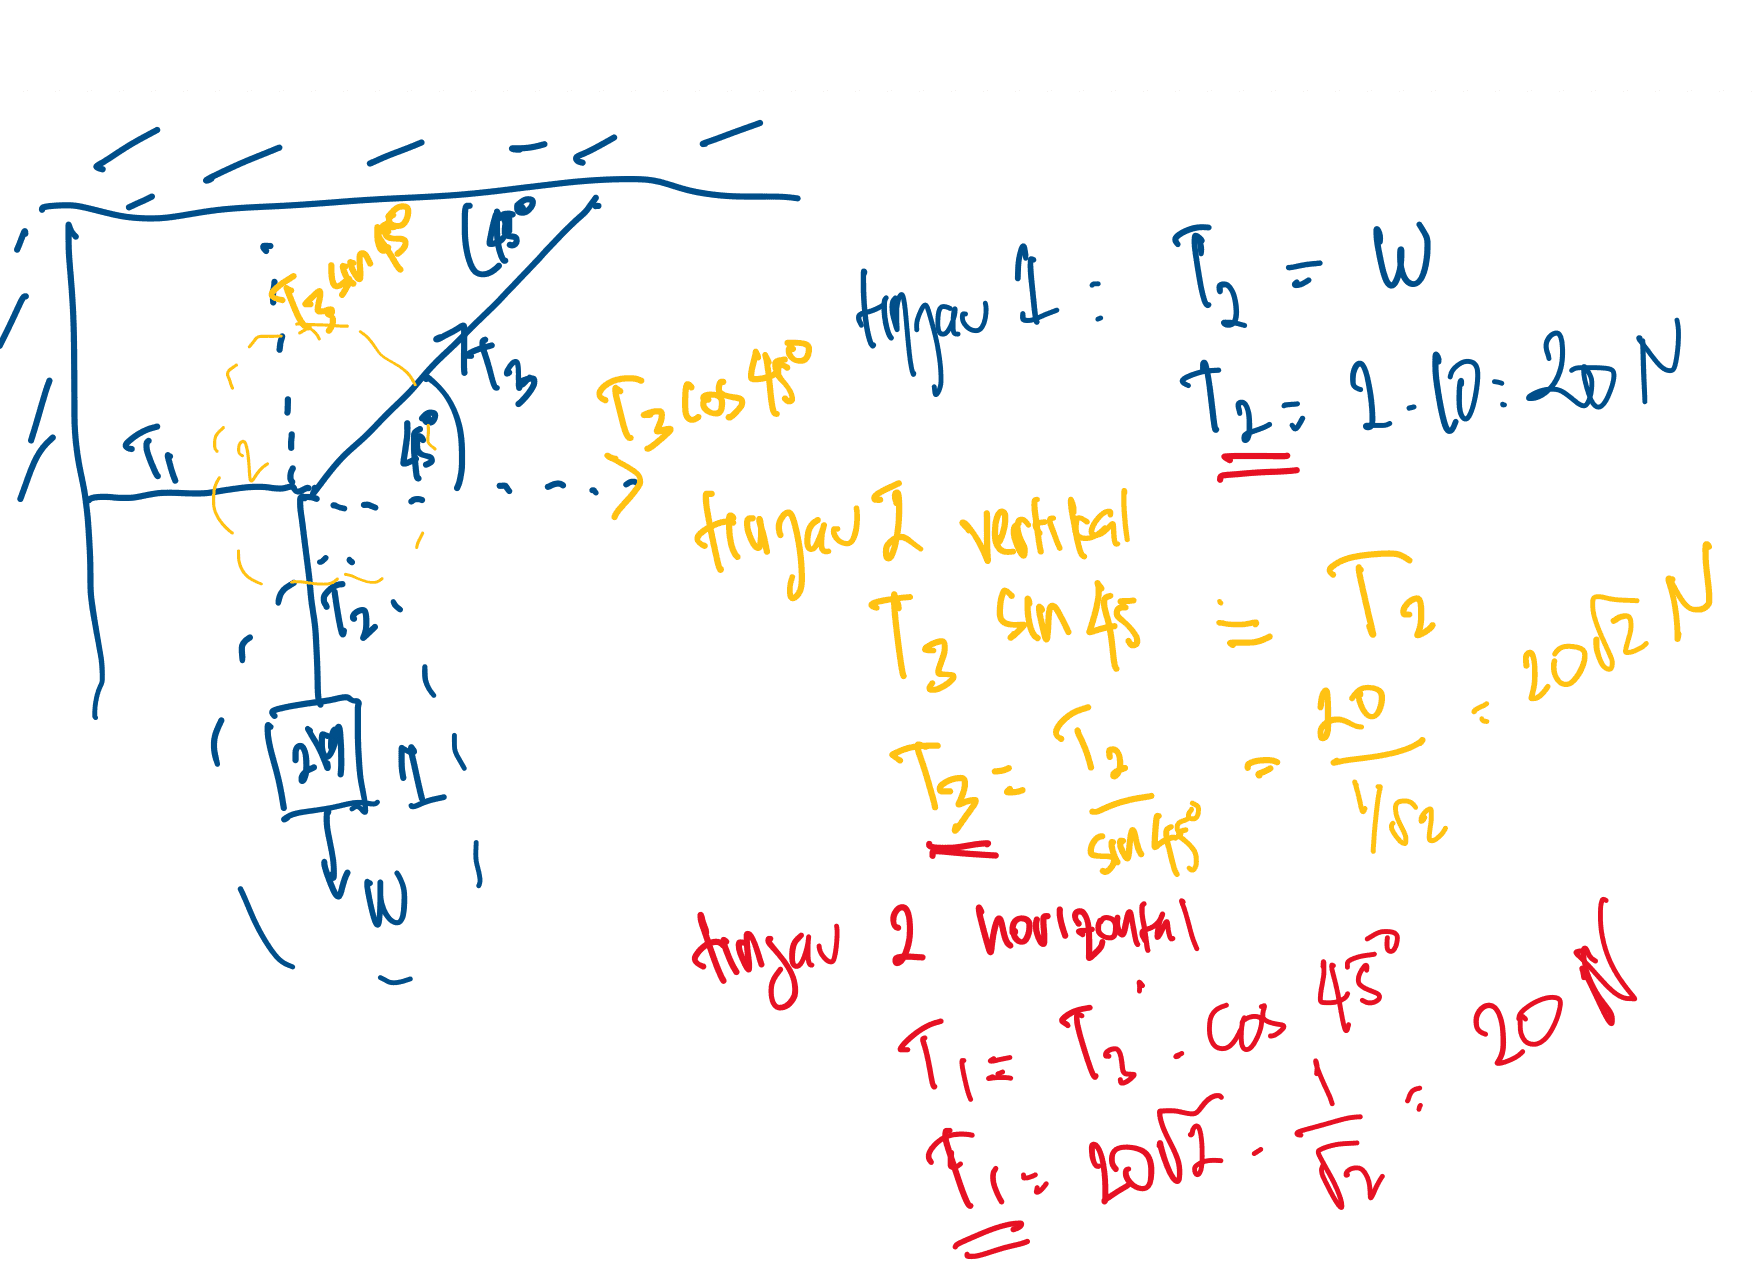 T₃ sin 45°
45°
T₃
T₃ cos 45°
45°
T₁
2
T₂
2kg
1
W
tinjau 1 : T₂ = W
T₂ = 2 . 10 = 20 N
tinjau 2 vertikal
T₃ sin 45 = T₂
T₃ = T₂ / sin 45° = 20 / 1/√2 = 20√2 N
tinjau 2 horizontal
T₁ = T₃ . cos 45°
T₁ = 20√2 . 1/√2 = 20 N